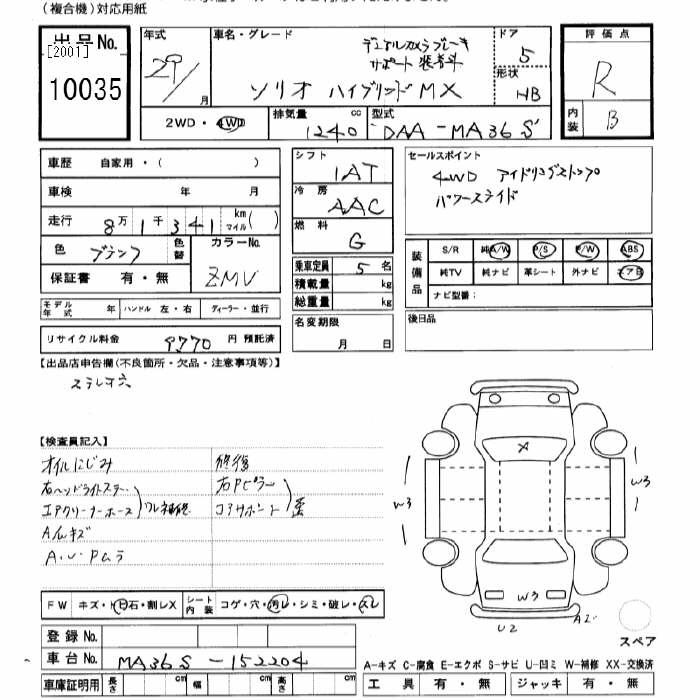 (複合機)対応用紙
出品No.
[2001]
10035
年式
29/
月
車名・グレード
デュアルカメラブレーキ
サポート装着車
ソリオ ハイブリッドMX
ドア
5
形状
HB
2WD・4WD
排気量
cc
1240
型式
DAA-MA36S
評価点
R
内装
B
車歴 自家用・( )
車検 年 月
走行 8万1千341 km マイル( )
色
色替
カラーNo.
ZMV
保証書 有・無
モデル年式 年 ハンドル 左・右 ディーラー・並行
リサイクル料金 9770 円 預託済
シフト
IAT
冷房
AAC
燃料
G
乗車定員 5 名
積載量 kg
総重量 kg
名変期限
月 日
セールスポイント
4WD アイドリングストップ
パワースライド
装備品
S/R 純A/W P/S P/W ABS
純TV 純ナビ 革シート 外ナビ エアB
ナビ型番:
後日品
【出品店申告欄(不良箇所・欠品・注意事項等)】
ステレオ穴
【検査員記入】
オイルにじみ
右ヘッドライトステー
エアクリーナーホース
ワレ補修
Aルキズ
A・U・Pムラ
修復
右Pピラー
コアサポート
歪
X
W3
W3
W3
U2
A2
スペア
FW キズ・ト日石・割レX
シート内装 コゲ・穴・汚レ・シミ・破レ・スレ
登録No.
車台No. MA36S-152204
車庫証明用 長さ cm 幅 cm 高さ cm
A-キズ C-腐食 E-エクボ S-サビ U-凹ミ W-補修 XX-交換済
工具 有・無 ジャッキ 有・無